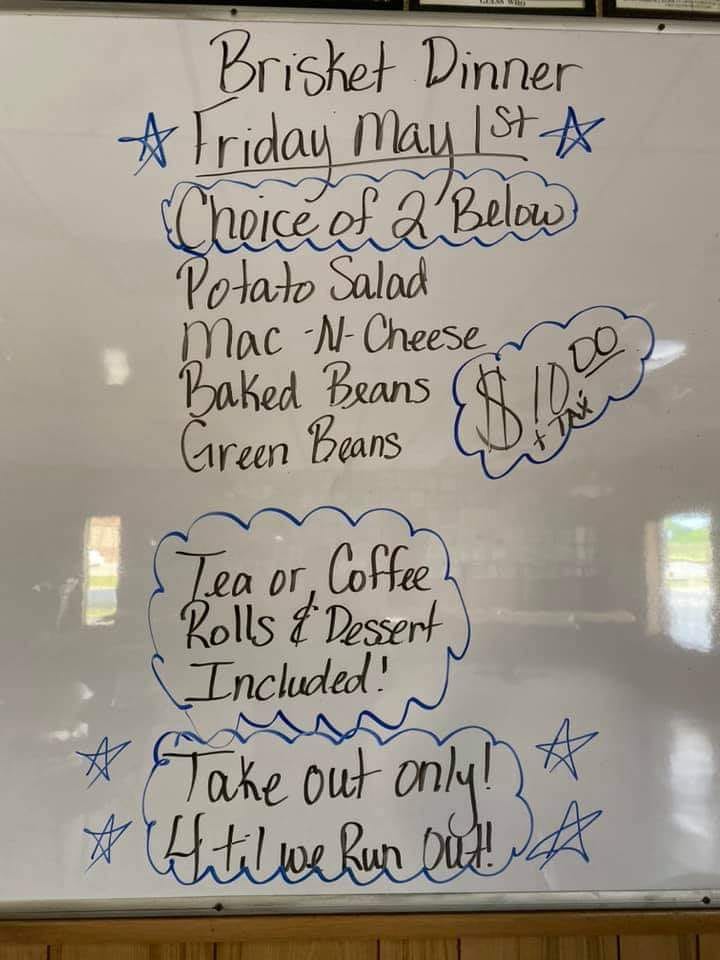 Brisket Dinner
Friday May 1st
Choice of 2 Below
Potato Salad
Mac -N- Cheese
Baked Beans
Green Beans
$10.00
+ TAX
Tea or Coffee
Rolls & Dessert
Included!
Take out only!
4 til we Run Out!